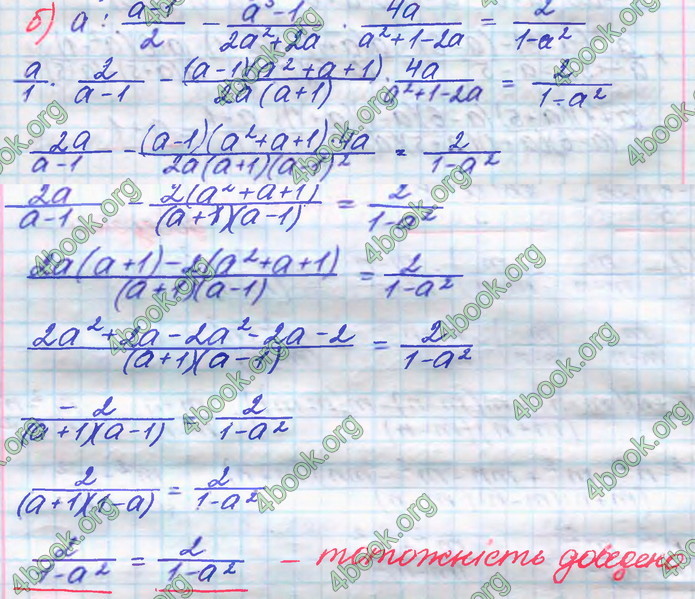 б) a : (a-1)/2 - (a³-1)/(2a²+2a) · 4a/(a²+1-2a) = 2/(1-a²)
a/1 · 2/(a-1) - (a-1)(a²+a+1)/(2a(a+1)) · 4a/(a²+1-2a) = 2/(1-a²)
2a/(a-1) - (a-1)(a²+a+1) 4a/(2a(a+1)(a-1)²) = 2/(1-a²)
2a/(a-1) - 2(a²+a+1)/((a+1)(a-1)) = 2/(1-a²)
(2a(a+1)-2(a²+a+1))/((a+1)(a-1)) = 2/(1-a²)
(2a²+2a-2a²-2a-2)/((a+1)(a-1)) = 2/(1-a²)
-2/((a+1)(a-1)) = 2/(1-a²)
2/((a+1)(1-a)) = 2/(1-a²)
2/(1-a²) = 2/(1-a²) - тотожність доведено
4book.org